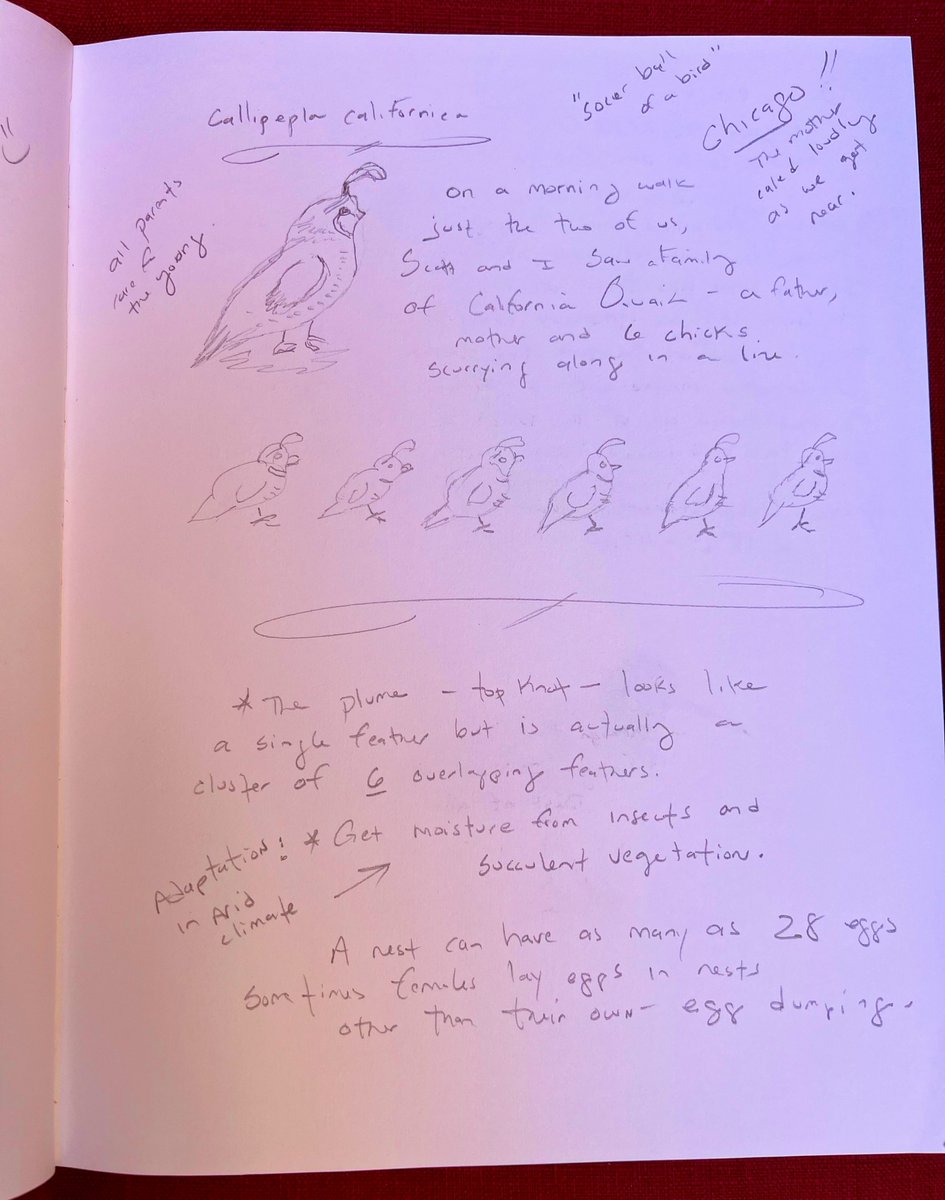 Callipepla californica
"Soccer ball
of a bird"
Chicago!!
The mother
called loudly
as we got
near.
all parents
care for
the young.
on a morning walk
just the two of us,
Scott and I saw a family
of California Quail - a father,
mother and 6 chicks
scurrying along in a line.
* The plume - top knot - looks like
a single feather but is actually a
cluster of 6 overlapping feathers.
Adaptation!
in Arid
climate
* Get moisture from insects and
succulent vegetation.
A nest can have as many as 28 eggs
Sometimes females lay eggs in nests
other than their own - egg dumping.